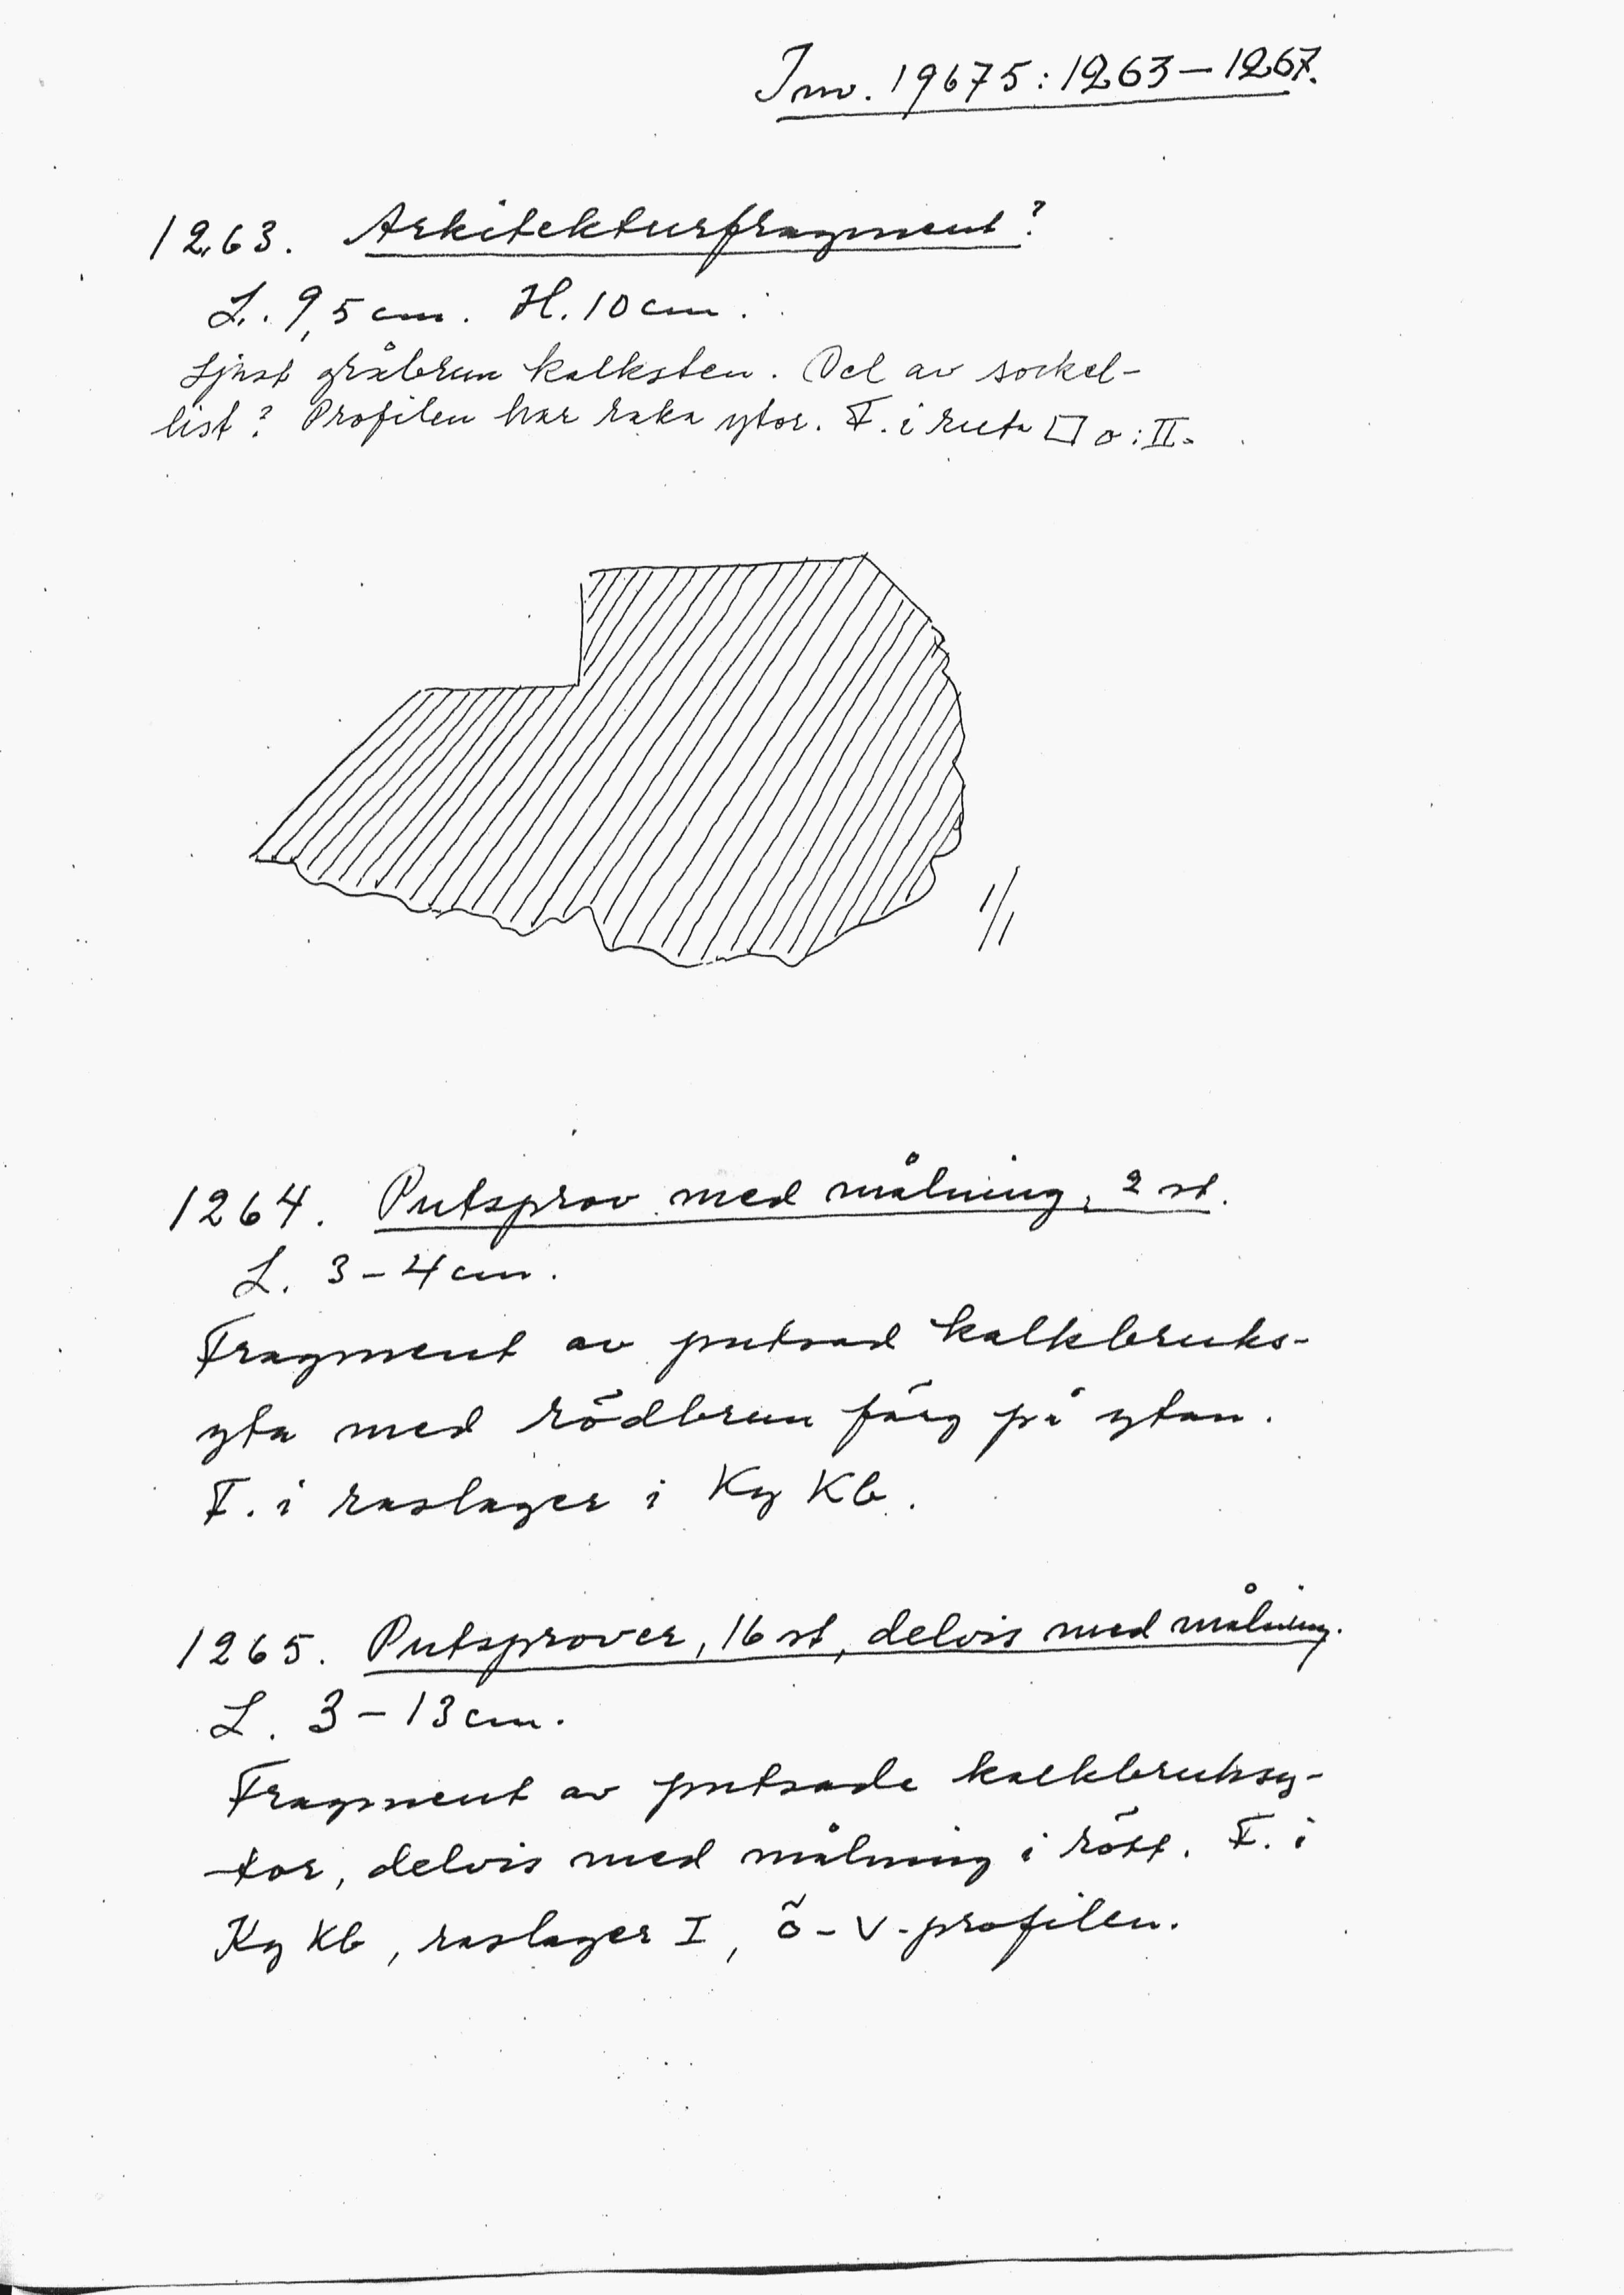 Inv. 19675:1263–1267.
1263. Arkitekturfragment?
L. 9,5 cm. H. 10 cm.
Ljust gråbrun kalksten. Del av sockel-
list? Profilen har raka ytor. F. i ruta □ o:II.
1/1
1264. Putsprov med målning, 2 st.
L. 3–4 cm.
Fragment av putsad kalkbruks-
yta med rödbrun färg på ytan.
F. i raslager i Ky Kb.
1265. Putsprover, 16 st, delvis med målning.
L. 3–13 cm.
Fragment av putsade kalkbruksy-
tor, delvis med målning i rött. F. i
Ky Kb, raslager I, ö-v-profilen.